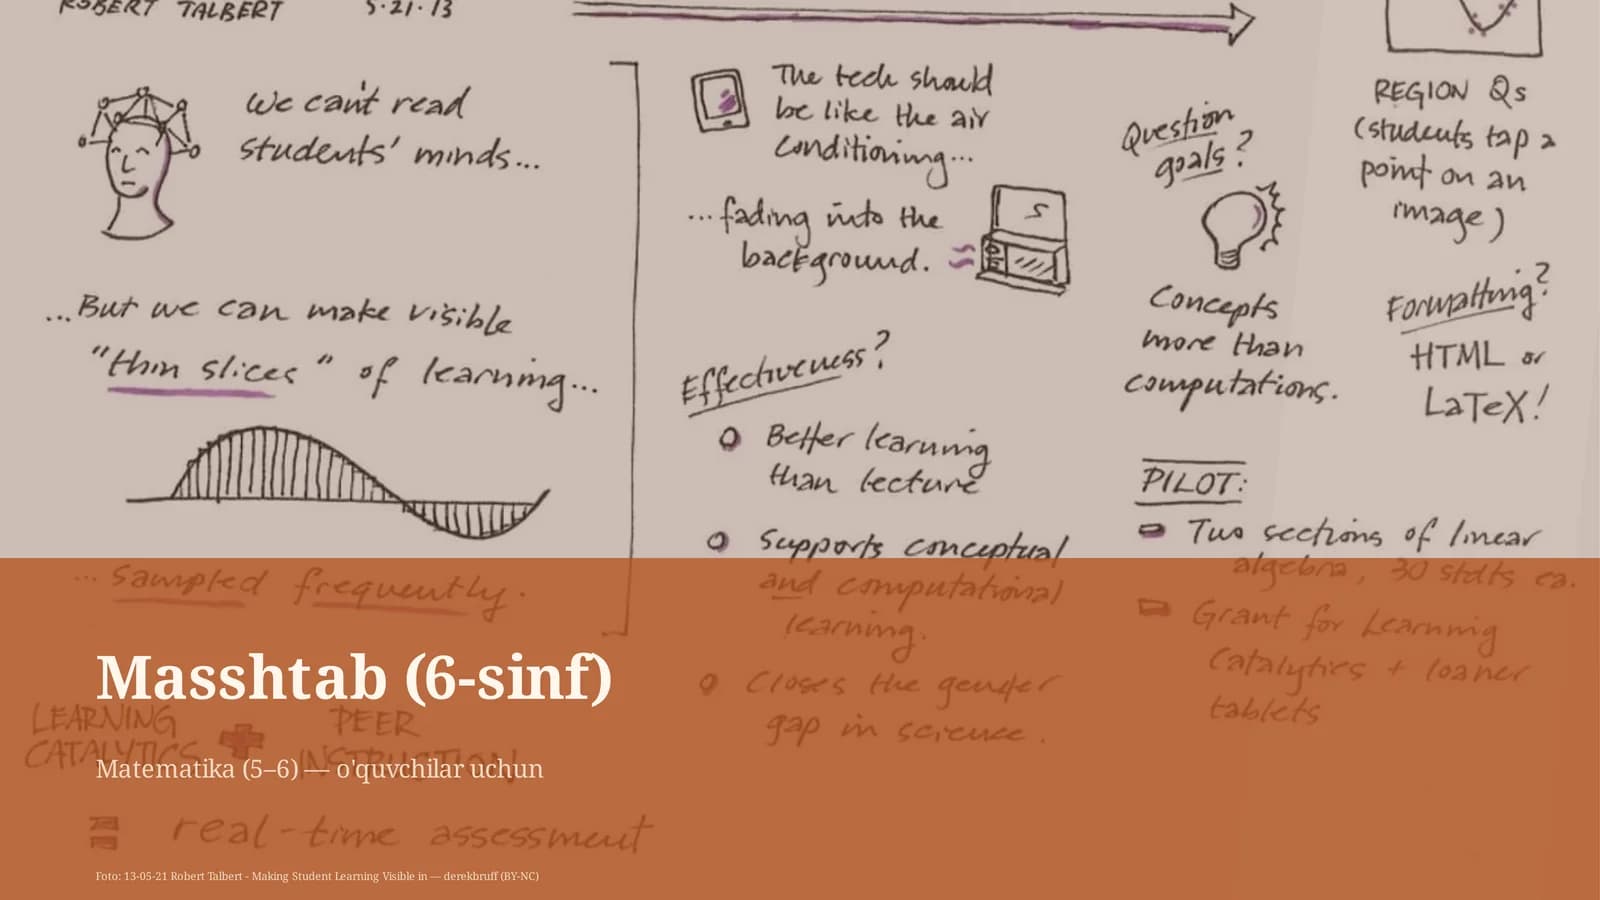 ROBERT TALBERT 5.21.13
we can't read
students' minds...
...But we can make visible
"thin slices" of learning...
... sampled frequently.
LEARNING
CATALYTICS
PEER
INSTRUCTION
real-time assessment
The tech should
be like the air
conditioning...
...fading into the
background.
Effectiveness?
Better learning
than lecture
Supports conceptual
and computational
learning.
Closes the gender
gap in science.
Question
goals?
Concepts
more than
computations.
PILOT:
Two sections of linear
algebra, 30 stdts ea.
Grant for Learning
Catalytics + loaner
tablets
REGION Qs
(students tap a
point on an
image)
Formatting?
HTML or
LaTeX!
Masshtab (6-sinf)
Matematika (5–6) — o'quvchilar uchun
Foto: 13-05-21 Robert Talbert - Making Student Learning Visible in — derekbruff (BY-NC)